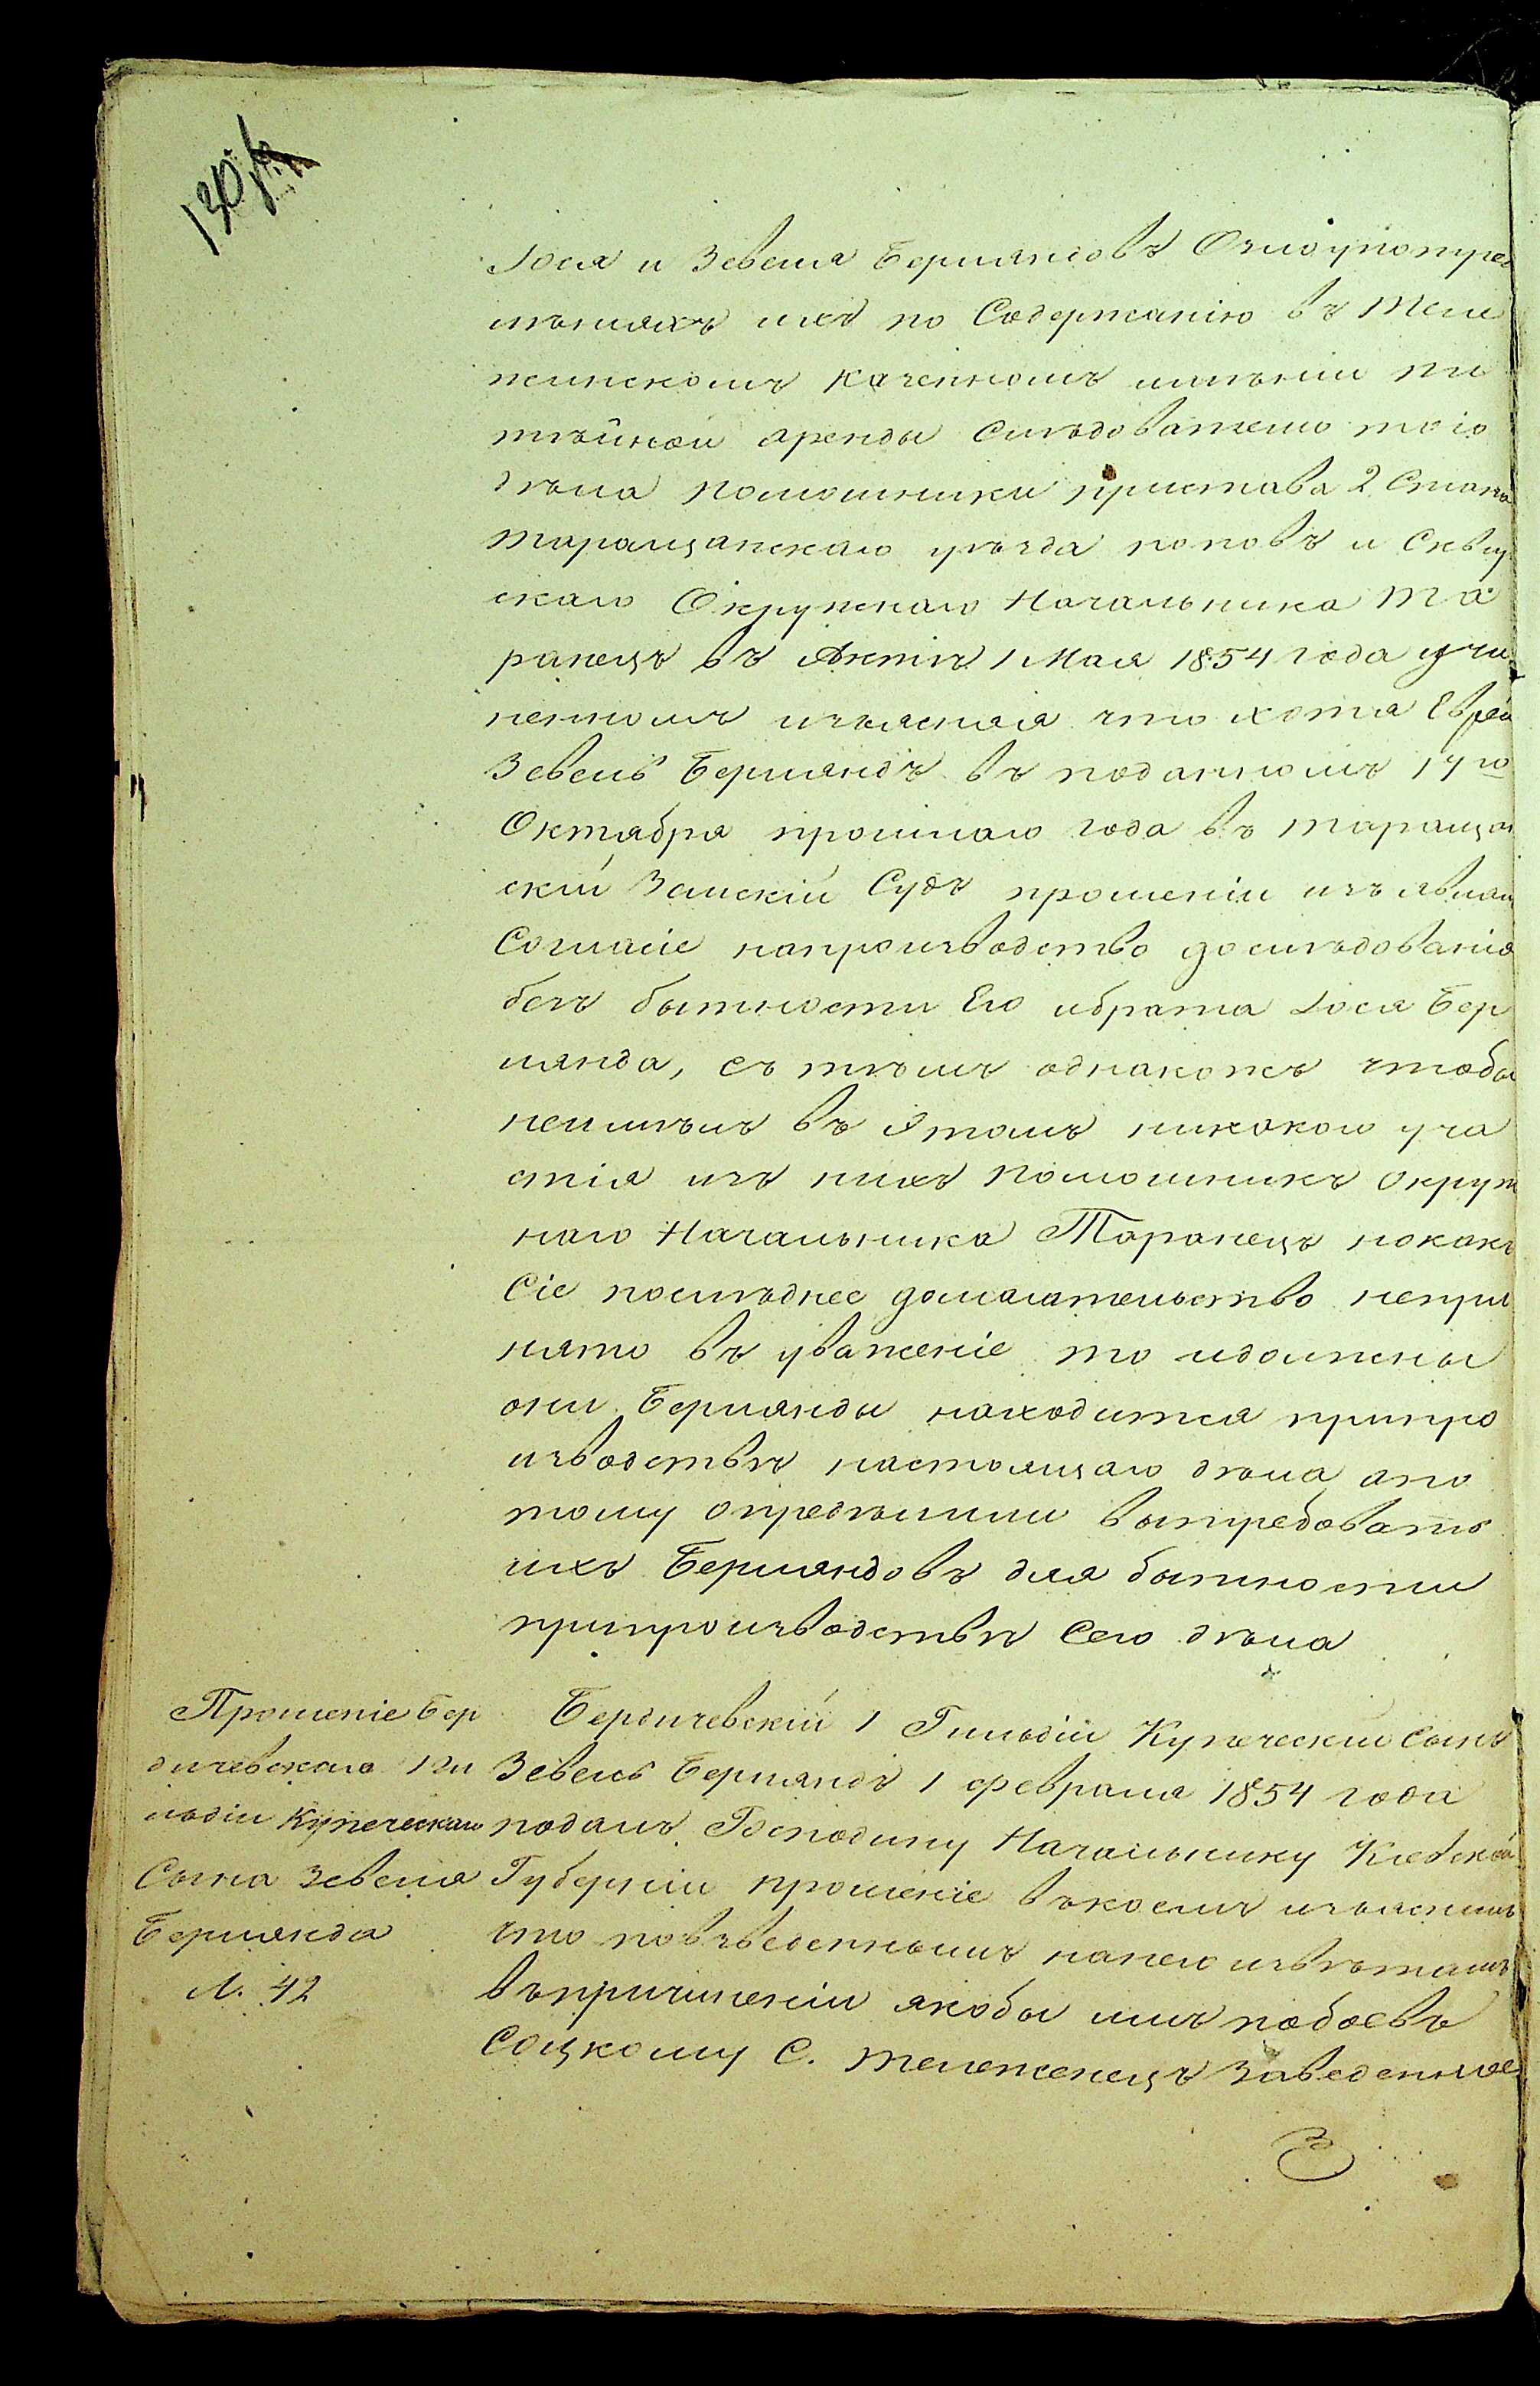 130
Іося и Зевеля Берляндовъ О злоупотреб
лѣніяхъ ихъ по Содержанію въ теле
жинскомъ казенномъ имѣніи пи
тѣйной аренды Слѣдователи того
дѣла помошники пристава 2 Стана
таращанскаго уѣзда поповъ и Сквир
скаго Окружнаго Начальника та
ранецъ въ Актѣ 1 Мая 1854 года учи
ненномъ изъяснили что хотя Еврей
Зевель Берляндъ въ поданномъ 17го
Октября прошлаго года въ таращан
скій Земскій Судъ прошеніи изъявилъ
Согласіе напроизводство дослѣдованія
безъ бытности Его ибрата Іося Бер
лянда, съ тѣмъ однакожъ чтобы
неимѣлъ въ Этомъ никокого уча
стія изъ нихъ помошникъ окруж
наго Начальника Таранецъ нокакъ
Сіе послѣднее домагательство непри
нято въ уваженіе то идолжны
они Берлянды находится припро
изводствѣ настоящаго дѣла апо
тому опредѣлили вытребовать
ихъ Берляндовъ для бытности
припроизводствѣ Сего дѣла
Прошеніе Бер
дичевскаго 1 ги
льдіи Купеческаго
Сына Зевеля
Берлянда
Л. 42
Бердичевскій 1 Гильдіи Купеческій Сынъ
Зевель Берляндъ 1 февраля 1854 года
подалъ Господину Начальнику Кіевской
Губерніи прошеніе вкоемъ изъяснилъ
что повзведеннымъ нанего извѣтамъ
впричиненіи якобы имъ побоевъ
Соцкому С. тележенецъ Заведенное